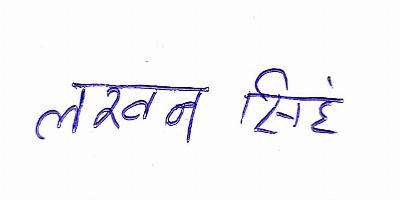 लखन सिहं